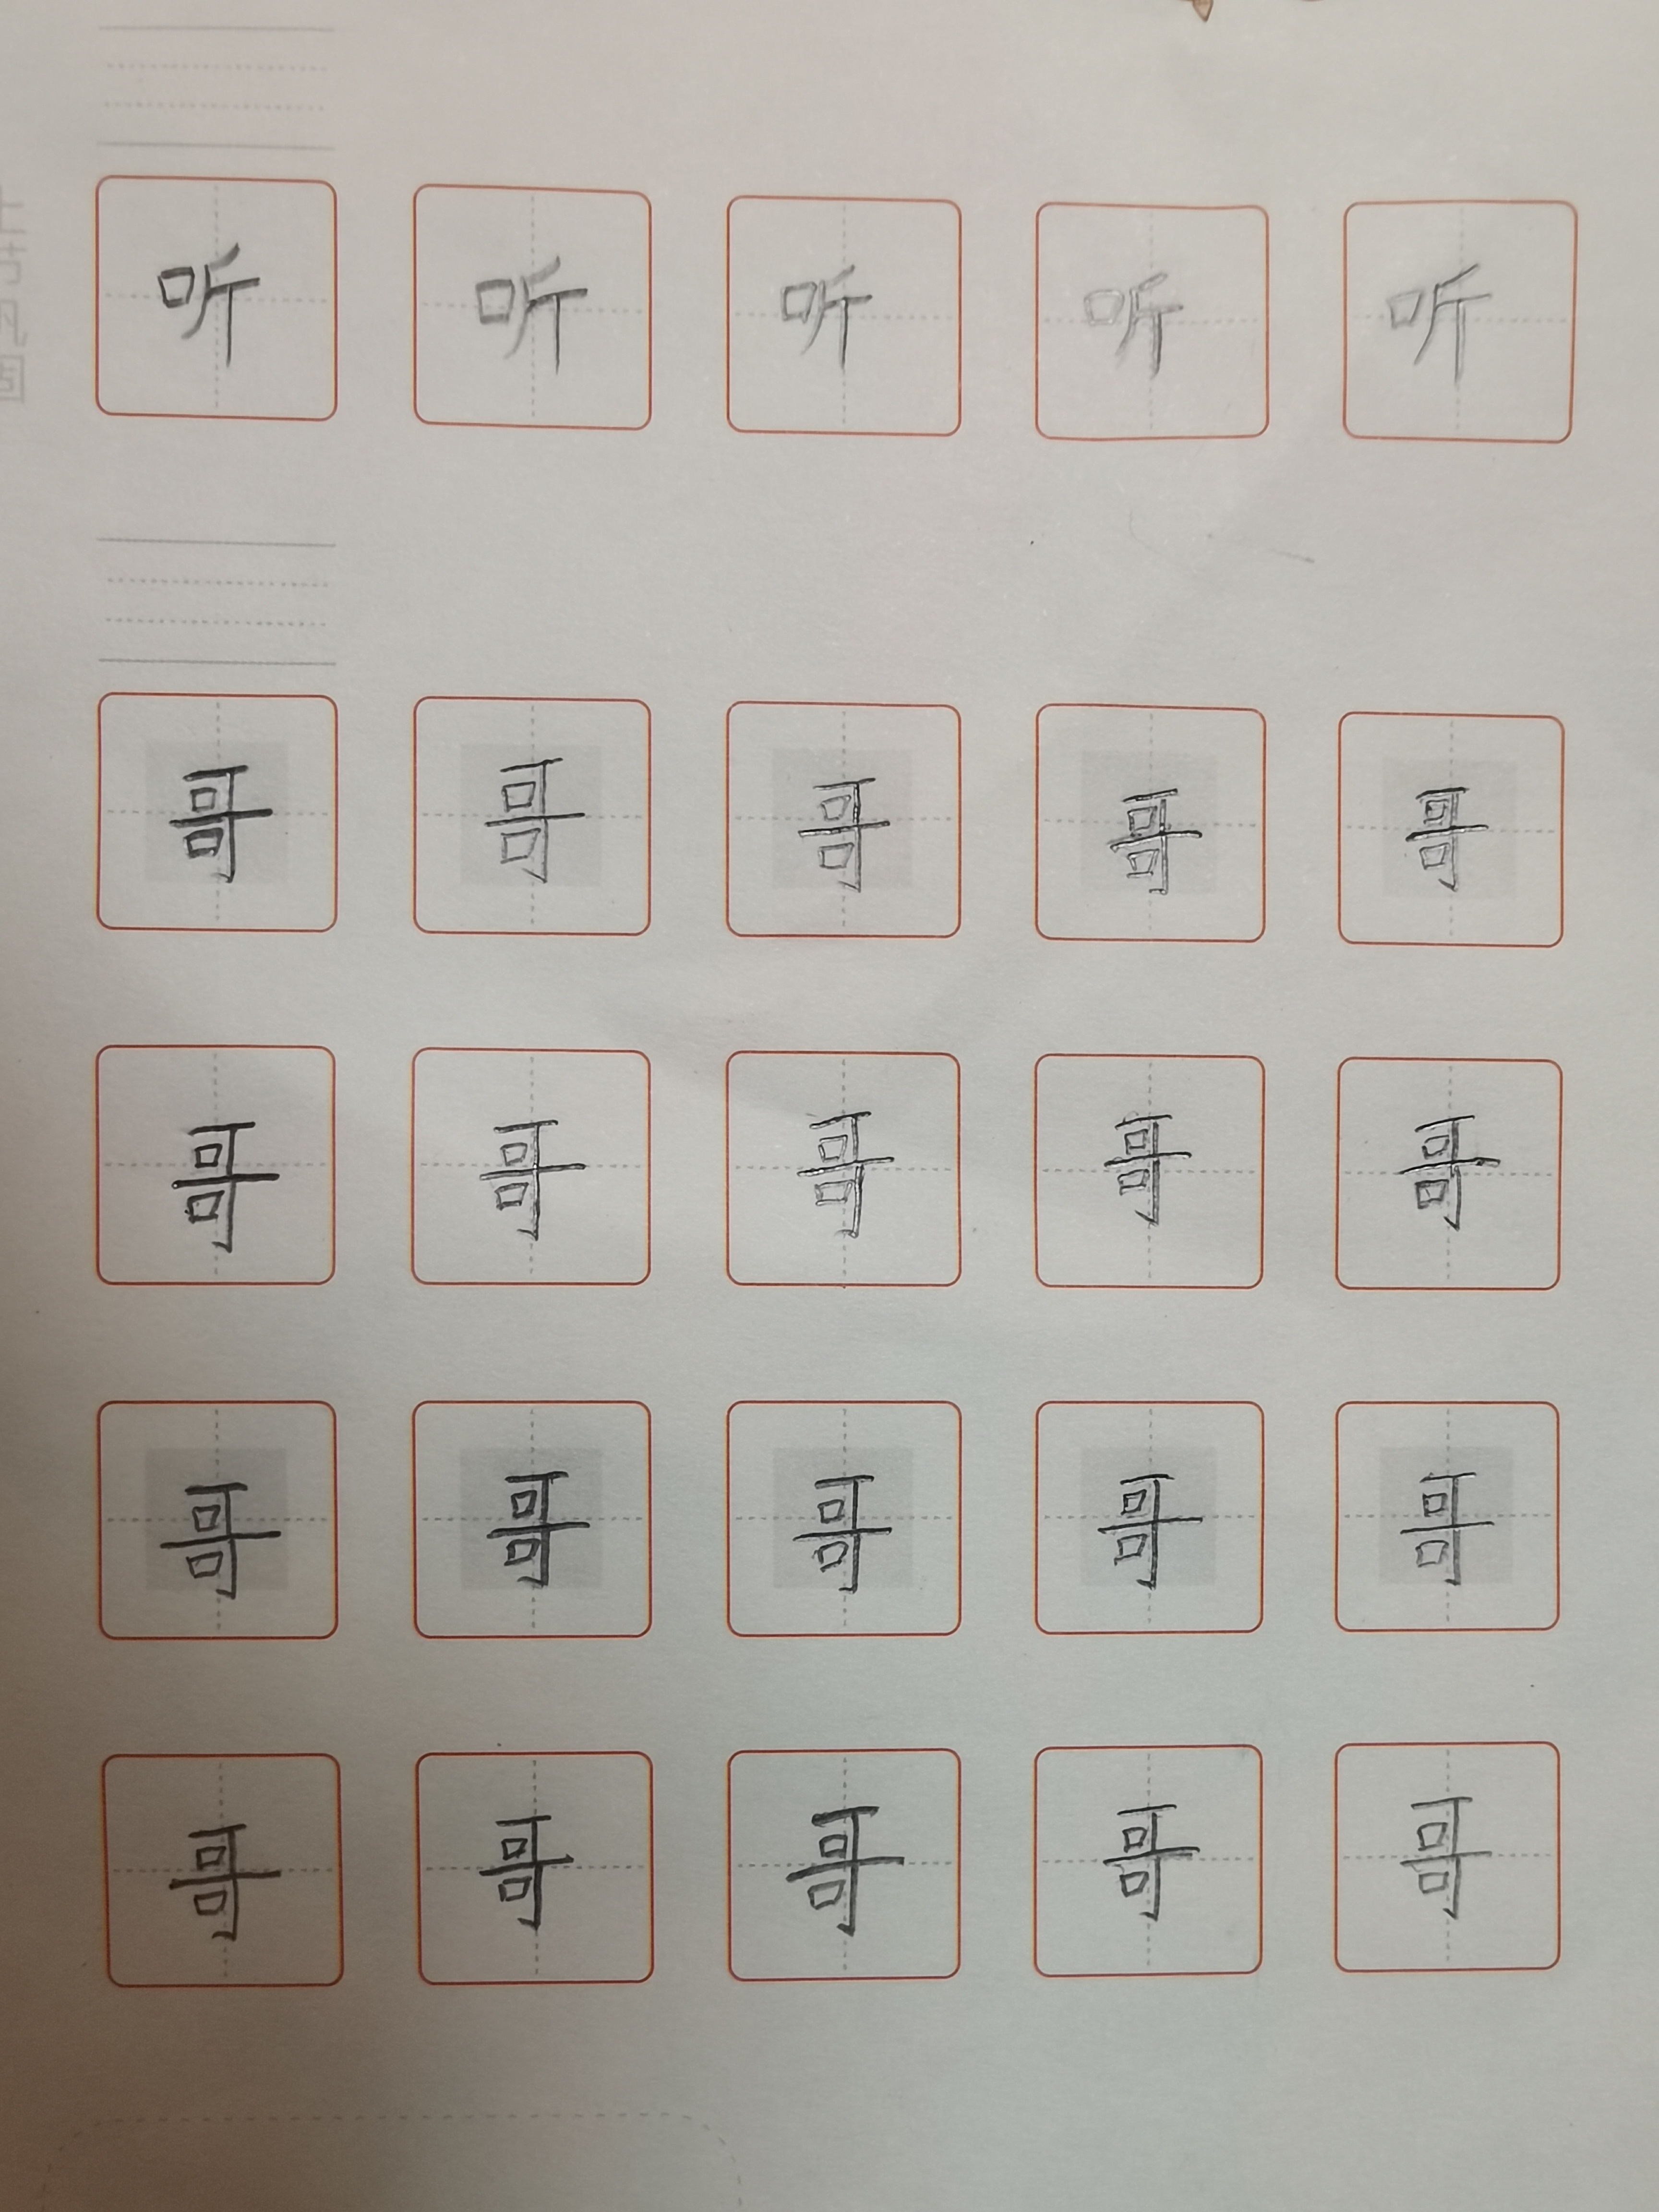 听 听 听 听 听
哥 哥 哥 哥 哥
哥 哥 哥 哥 哥
哥 哥 哥 哥 哥
哥 哥 哥 哥 哥